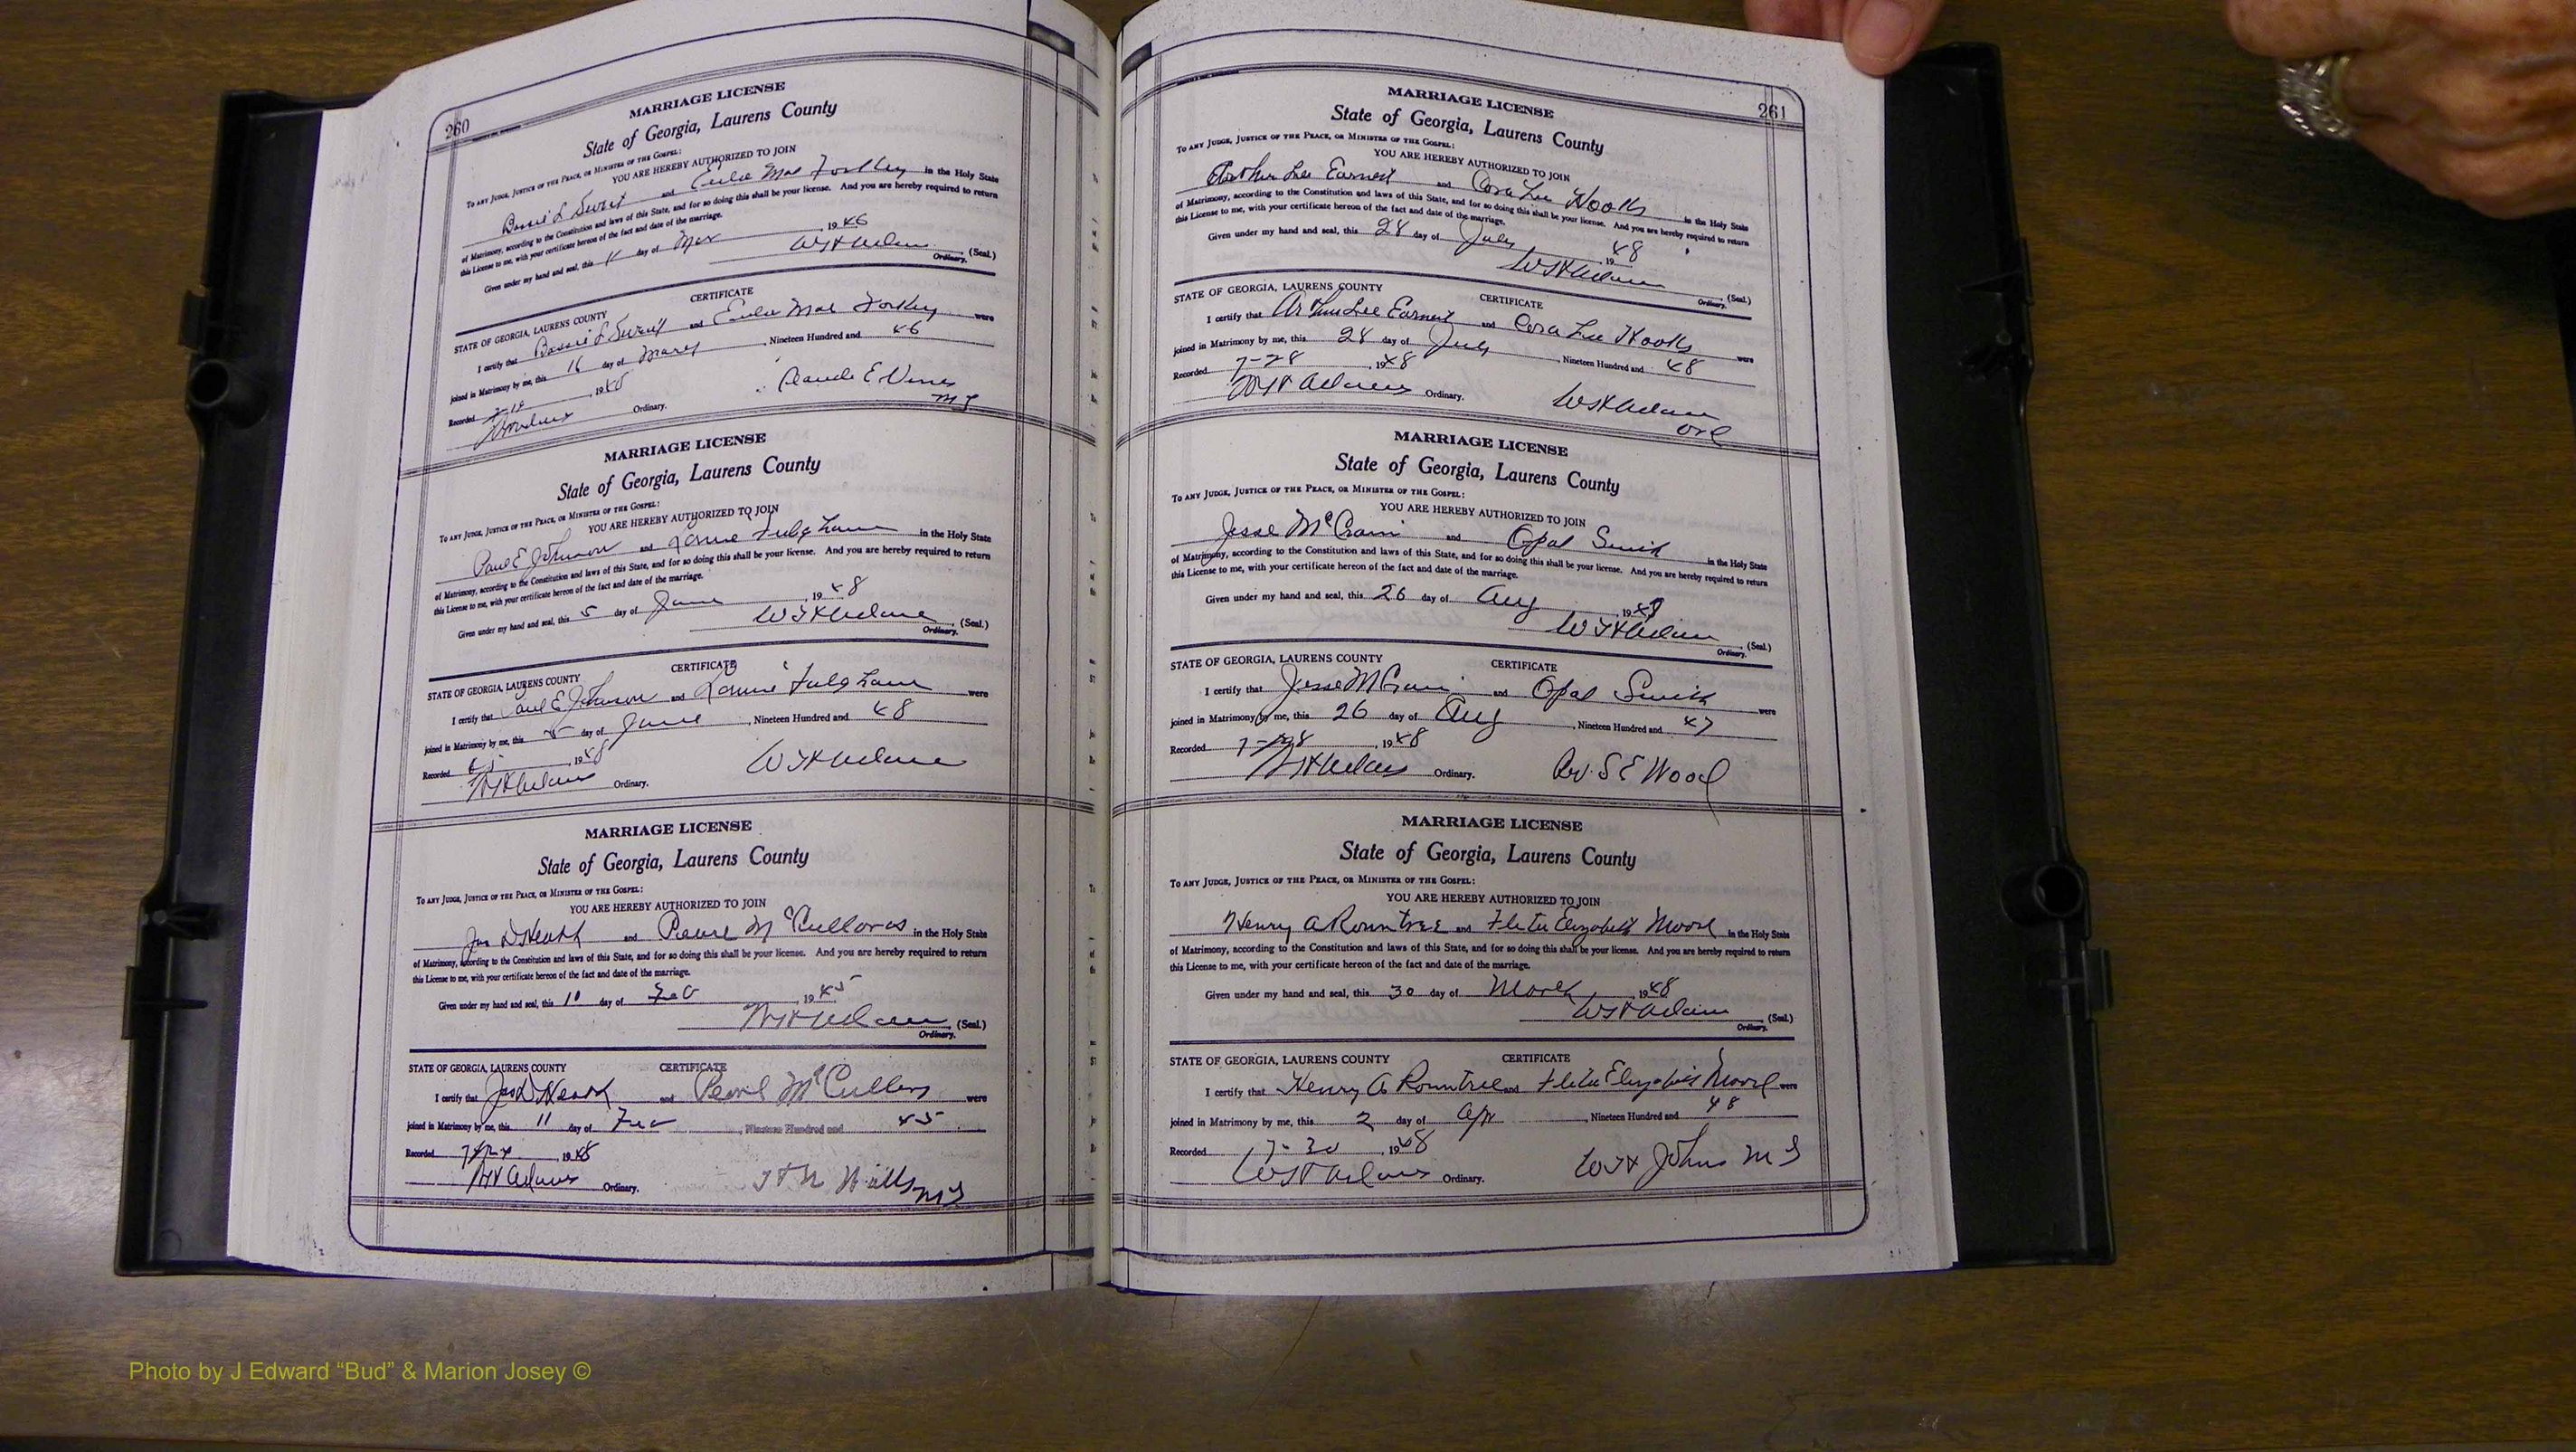 260
MARRIAGE LICENSE
State of Georgia, Laurens County
TO ANY JUDGE, JUSTICE OF THE PEACE, OR MINISTER OF THE GOSPEL:
YOU ARE HEREBY AUTHORIZED TO JOIN
and Mae in the Holy State
of Matrimony, according to the Constitution and laws of this State, and for so doing this shall be your license. And you are hereby required to return
this License to me, with your certificate hereon of the fact and date of the marriage.
Given under my hand and seal, this day of Mar 1946
(Seal.)
Ordinary.
CERTIFICATE
STATE OF GEORGIA, LAURENS COUNTY
I certify that and Mae were
joined in Matrimony by me, this 16 day of , Nineteen Hundred and 46
Recorded , 19
Ordinary.
Claude E Vines
MG
MARRIAGE LICENSE
State of Georgia, Laurens County
TO ANY JUDGE, JUSTICE OF THE PEACE, OR MINISTER OF THE GOSPEL:
YOU ARE HEREBY AUTHORIZED TO JOIN
Paul E Johnson and Fulgham in the Holy State
of Matrimony, according to the Constitution and laws of this State, and for so doing this shall be your license. And you are hereby required to return
this License to me, with your certificate hereon of the fact and date of the marriage.
Given under my hand and seal, this 5 day of June , 1948
W H Adams (Seal.)
Ordinary.
CERTIFICATE
STATE OF GEORGIA, LAURENS COUNTY
I certify that Paul E Johnson and Fulgham were
joined in Matrimony by me, this 5 day of June , Nineteen Hundred and 48
Recorded , 1948
Ordinary.
MARRIAGE LICENSE
State of Georgia, Laurens County
TO ANY JUDGE, JUSTICE OF THE PEACE, OR MINISTER OF THE GOSPEL:
YOU ARE HEREBY AUTHORIZED TO JOIN
Jas D Heath and Pearl in the Holy State
of Matrimony, according to the Constitution and laws of this State, and for so doing this shall be your license. And you are hereby required to return
this License to me, with your certificate hereon of the fact and date of the marriage.
Given under my hand and seal, this 10 day of Feb , 1945
(Seal.)
Ordinary.
STATE OF GEORGIA, LAURENS COUNTY CERTIFICATE
I certify that Jas D Heath and Pearl McCullers were
joined in Matrimony by me, this 11 day of Feb , Nineteen Hundred and 45
Recorded , 1948
Ordinary.
MG
261
MARRIAGE LICENSE
State of Georgia, Laurens County
TO ANY JUDGE, JUSTICE OF THE PEACE, OR MINISTER OF THE GOSPEL:
YOU ARE HEREBY AUTHORIZED TO JOIN
Arthur Lee Earnest and Cora Lee Hooks in the Holy State
of Matrimony, according to the Constitution and laws of this State, and for so doing this shall be your license. And you are hereby required to return
this License to me, with your certificate hereon of the fact and date of the marriage.
Given under my hand and seal, this 28 day of July 1948
(Seal.)
Ordinary.
STATE OF GEORGIA, LAURENS COUNTY CERTIFICATE
I certify that Arthur Lee Earnest and Cora Lee Hooks were
joined in Matrimony by me, this 28 day of July , Nineteen Hundred and 48
Recorded 7-28 , 1948
W H Adams Ordinary.
W H Adams
Ord
MARRIAGE LICENSE
State of Georgia, Laurens County
TO ANY JUDGE, JUSTICE OF THE PEACE, OR MINISTER OF THE GOSPEL:
YOU ARE HEREBY AUTHORIZED TO JOIN
Jesse McCrain and Opal Smith in the Holy State
of Matrimony, according to the Constitution and laws of this State, and for so doing this shall be your license. And you are hereby required to return
this License to me, with your certificate hereon of the fact and date of the marriage.
Given under my hand and seal, this 26 day of Aug , 19
(Seal.)
Ordinary.
STATE OF GEORGIA, LAURENS COUNTY CERTIFICATE
I certify that Jesse McCrain and Opal Smith were
joined in Matrimony by me, this 26 day of Aug , Nineteen Hundred and 47
Recorded , 1948
Ordinary.
Rev. S E Wood
MARRIAGE LICENSE
State of Georgia, Laurens County
TO ANY JUDGE, JUSTICE OF THE PEACE, OR MINISTER OF THE GOSPEL:
YOU ARE HEREBY AUTHORIZED TO JOIN
Henry A Rountree and Elizabeth Moore in the Holy State
of Matrimony, according to the Constitution and laws of this State, and for so doing this shall be your license. And you are hereby required to return
this License to me, with your certificate hereon of the fact and date of the marriage.
Given under my hand and seal, this 30 day of March , 1948
(Seal.)
Ordinary.
STATE OF GEORGIA, LAURENS COUNTY CERTIFICATE
I certify that Henry A Rountree and Elizabeth Moore were
joined in Matrimony by me, this 2 day of Apr , Nineteen Hundred and 48
Recorded 7-30 , 1948
Ordinary.
Johns MG
Photo by J Edward “Bud” & Marion Josey ©